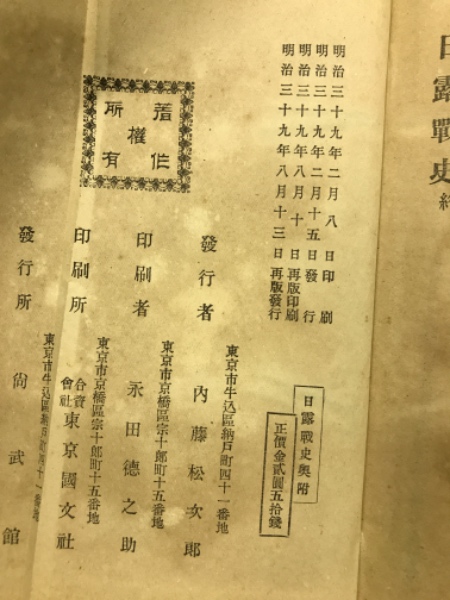 日露戰史 終
明治三十九年二月八日印刷
明治三十九年二月十五日發行
明治三十九年八月十日再版印刷
明治三十九年八月十三日再版發行
日露戰史奧附
正價金貳圓五拾錢
著作權所有
東京市牛込區納戸町四十一番地
發行者 內藤松次郎
東京市京橋區宗十郎町十五番地
印刷者 永田德之助
東京市京橋區宗十郎町十五番地
印刷所 合資會社 東京國文社
東京市牛込區納戸町四十一番地
發行所 尙武館